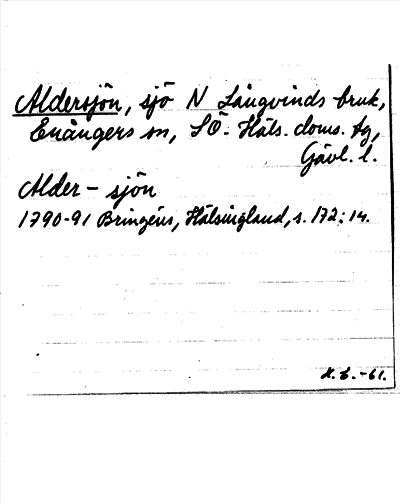 Aldersjön, sjö N Långvinds bruk,
Enångers sn, SÖ. Häls. doms. tg,
Gävl. l.
Alder - sjön
1790-91 Bringéus, Hälsingland, s. 172: 14.
-61.